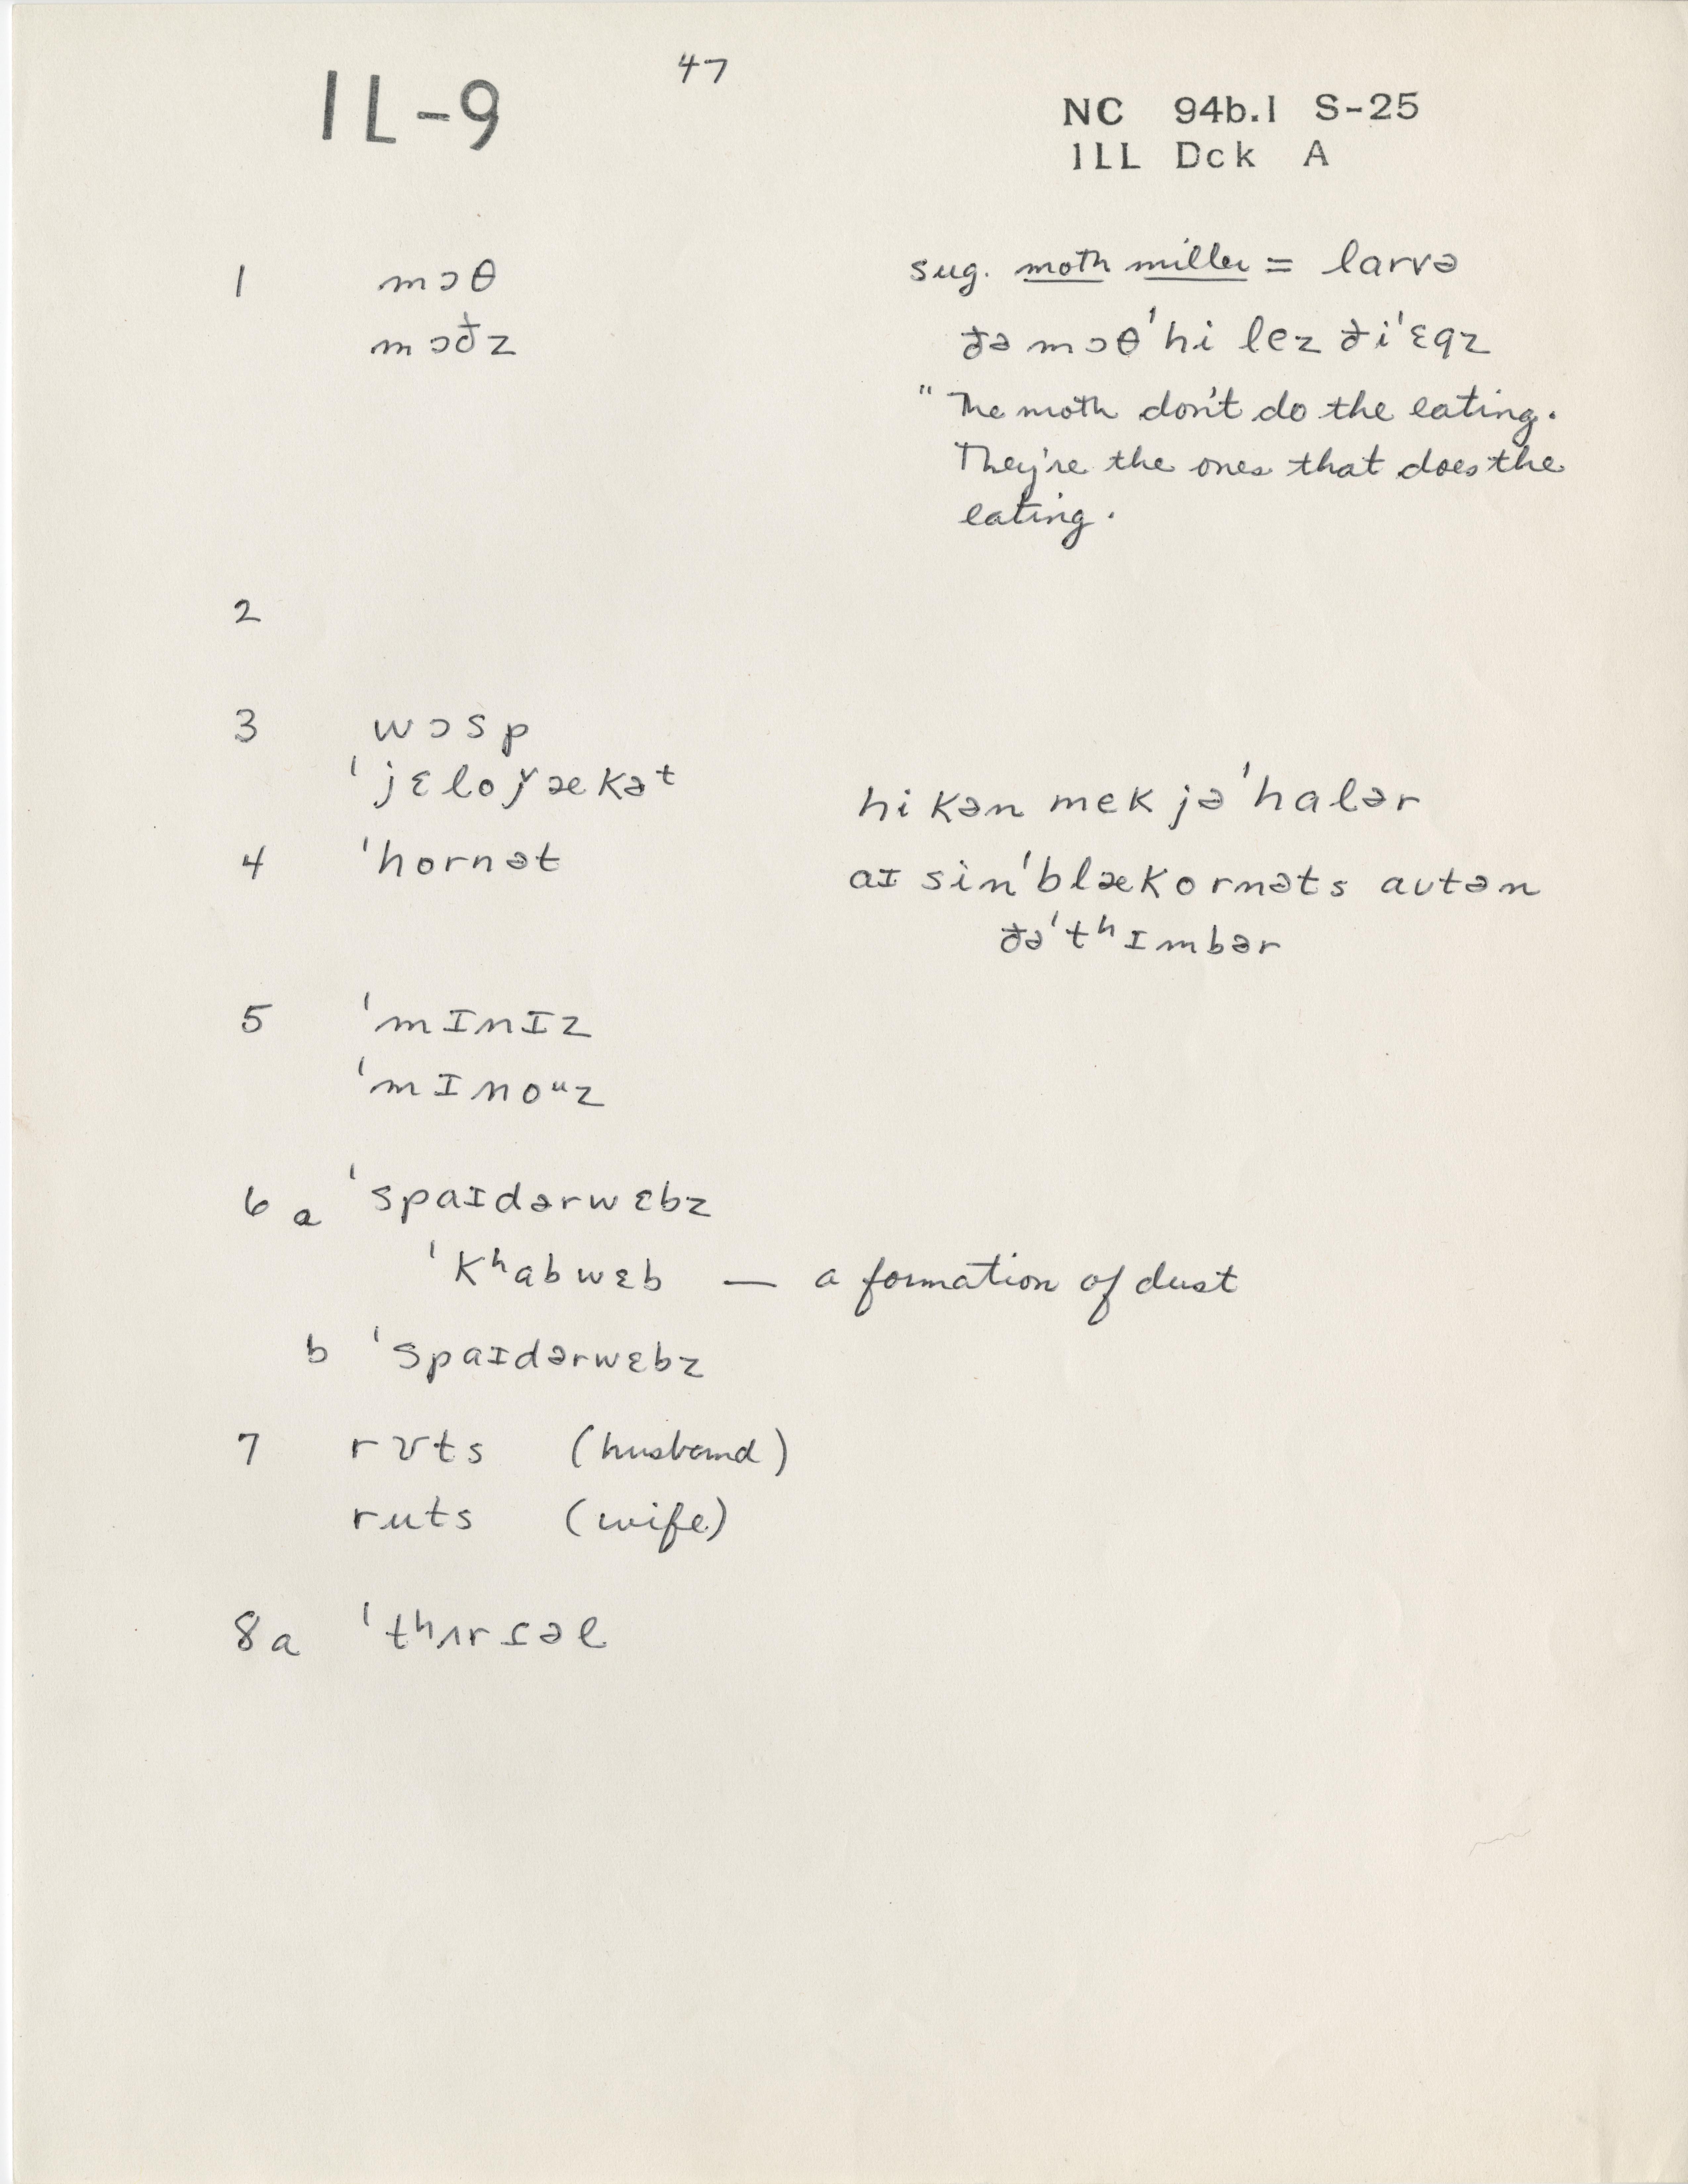 47
IL-9
NC 94b.1 S-25
ILL Dck A
1 mɔθ sug. moth miller = larvə
mɔðz ðə mɔθ ˈhi lez ði ˈɛgz
"The moth don't do the eating.
They're the ones that does the
eating.
2
3 wɔsp
ˈjɛloǰækəᵗ hi kən mek jə ˈhalər
4 ˈhornət aɪ sin ˈblækornəts aʊtən
ðə ˈtʰɪmbər
5 ˈmɪnɪz
ˈmɪnoᵘz
6 a ˈspaɪdərwɛbz
ˈkʰabwɛb — a formation of dust
b ˈspaɪdərwɛbz
7 rʊts (husband)
ruts (wife)
8 a